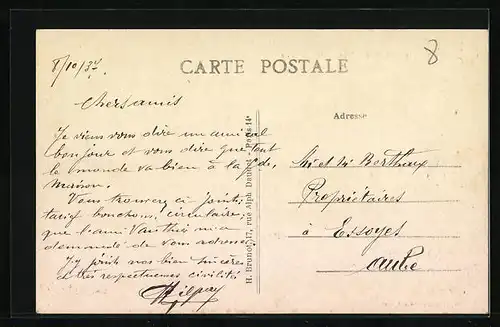 8/10/37
8
CARTE POSTALE
Adresse
Chers amis
Je viens vous dire un amical
bonjour et vous dire que tout
le monde va bien à la Cde,
maison.
Vous trouverez ci joint,
tarif bouchons, circulaire,
que l'ami Vauthier m'a
demandé de vous adresser
J'y joint nos bien sincères
et très respectueuses civilités
H. Brunot, 17, rue Alph Daudet - Paris 14e
Mr et Me Berthaux
Propriétaires
à Essoyes
Aube